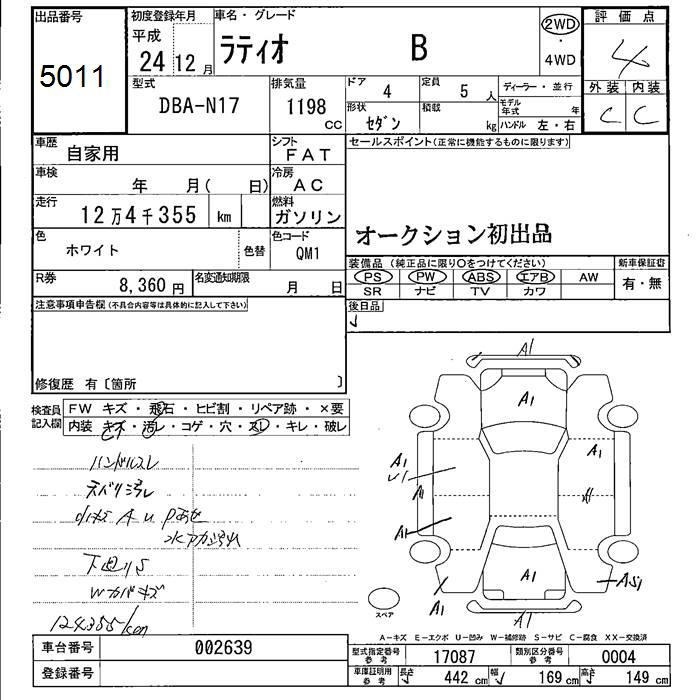 出品番号
5011
初度登録年月
平成
24 12 月
車名・グレード
ラティオ B
2WD
・
4WD
評価点
4
外装 内装
C C
型式
DBA-N17
排気量
1198
CC
ドア
4
定員
5 人
形状
セダン
積載
kg
ディーラー・並行
モデル年式 年
ハンドル 左・右
車歴
自家用
シフト
FAT
車検
年 月( 日)
冷房
AC
走行
12万4千355 km
燃料
ガソリン
色
ホワイト
色替
色コード
QM1
R券
8,360 円
名変通知期限
月 日
セールスポイント(正常に機能するものに限ります)
オークション初出品
装備品(純正品に限り○をつけてください)
PS PW ABS エアB AW
SR ナビ TV カワ
新車保証書
有・無
後日品
注意事項申告欄(不具合内容等は具体的に記入して下さい)
修復歴 有〔箇所 〕
検査員
記入欄
FW キズ・飛石・ヒビ割・リペア跡・×要
内装 キズ・汚レ・コゲ・穴・スレ・キレ・破レ
ハンドルスレ
ネバリ汚レ
小キズ A U Pあせ
水アカ汚れ
下廻りS
Wカバキズ
124355km
A1
A1
A1
A1
A1
A1
A1
A1
A1
AS1
スペア
A-キズ E-エクボ U-凹み W-補修跡 S-サビ C-腐食 XX-交換済
車台番号 002639
登録番号
型式指定番号
参考
17087
類別区分番号
参考
0004
車庫証明用
参考
長さ 442 cm 幅 169 cm 高さ 149 cm